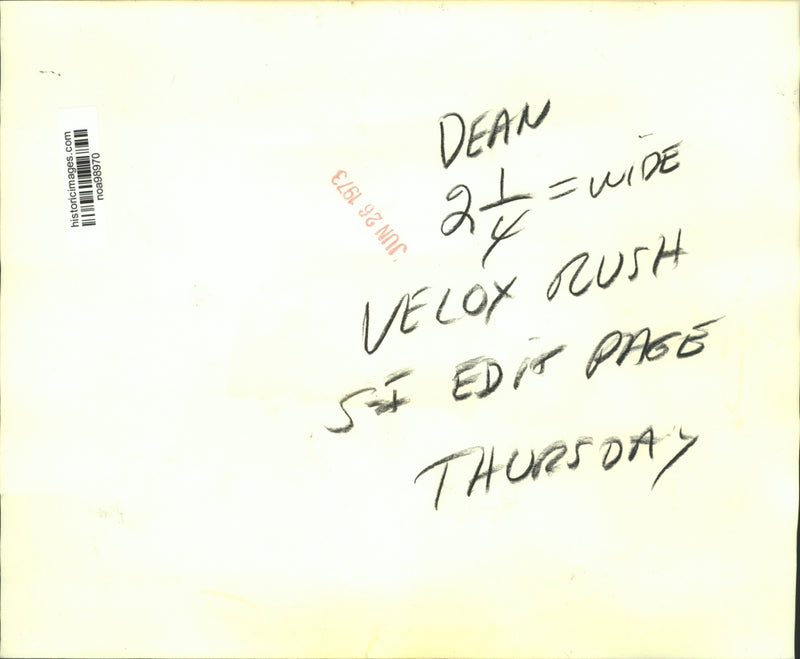 DEAN
2 1/4 = WIDE
VELOX RUSH
EDIT PAGE
THURSDAY
JUN 26 1973
historicimages.com
noa98970